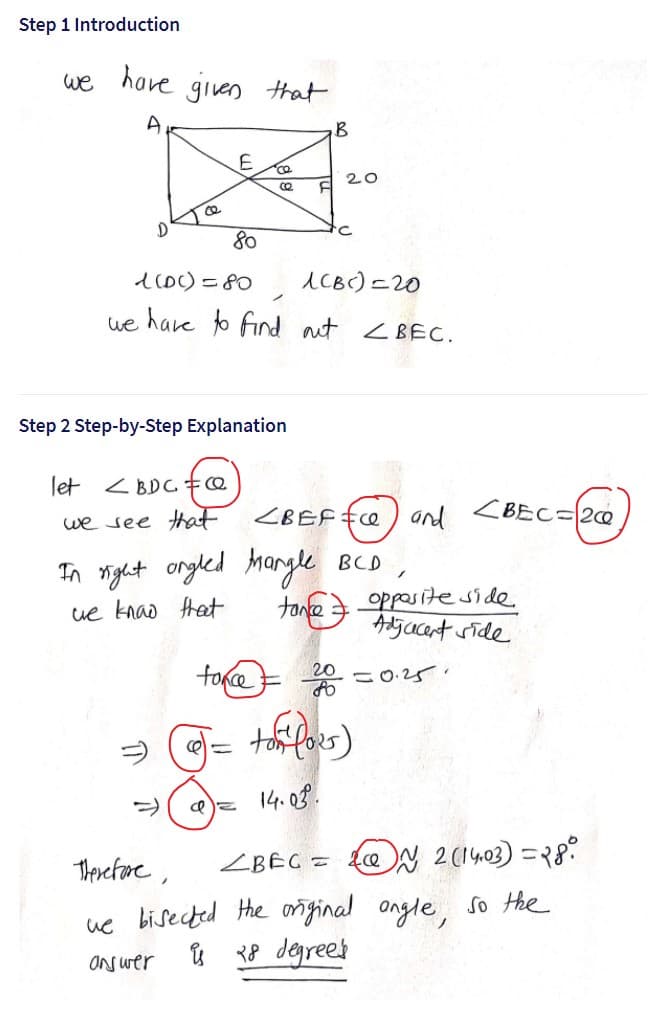 Step 1 Introduction
we have given that
A
B
E
œ
œ
F
20
œ
D
80
C
l(DC) = 80 , l(BC) = 20
we have to find out ∠BEC.
Step 2 Step-by-Step Explanation
let ∠BDC = œ
we see that ∠BEF = œ and ∠BEC = 2œ
In right angled triangle BCD,
we know that tanœ = opposite side / Adjacent side
tanœ = 20/80 = 0.25.
⇒ œ = tan⁻¹(0.25)
⇒ œ = 14.03°.
Therefore, ∠BEC = 2œ ≈ 2(14.03) = 28°.
we bisected the original angle, so the
answer is 28 degrees